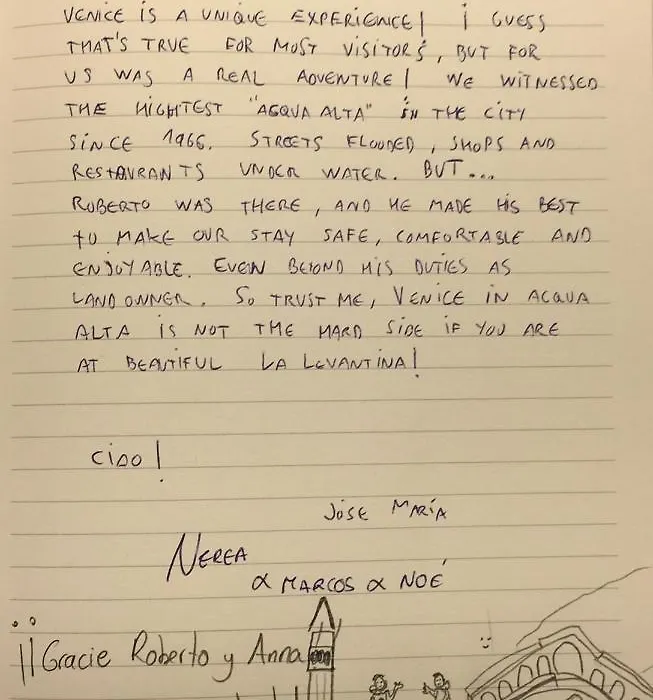 VENICE IS A UNIQUE EXPERIENCE! I GUESS
THAT'S TRUE FOR MOST VISITORS, BUT FOR
US WAS A REAL ADVENTURE! WE WITNESSED
THE HIGHTEST "ACQUA ALTA" IN THE CITY
SINCE 1966. STREETS FLOODED, SHOPS AND
RESTAURANTS UNDER WATER. BUT...
ROBERTO WAS THERE, AND HE MADE HIS BEST
TO MAKE OUR STAY SAFE, COMFORTABLE AND
ENJOYABLE. EVEN BEYOND HIS DUTIES AS
LANDOWNER. SO TRUST ME, VENICE IN ACQUA
ALTA IS NOT THE HARD SIDE IF YOU ARE
AT BEAUTIFUL LA LEVANTINA!
CIAO!
JOSE MARÍA
NEREA
& MARCOS & NOÉ
¡¡Gracie Roberto y Anna